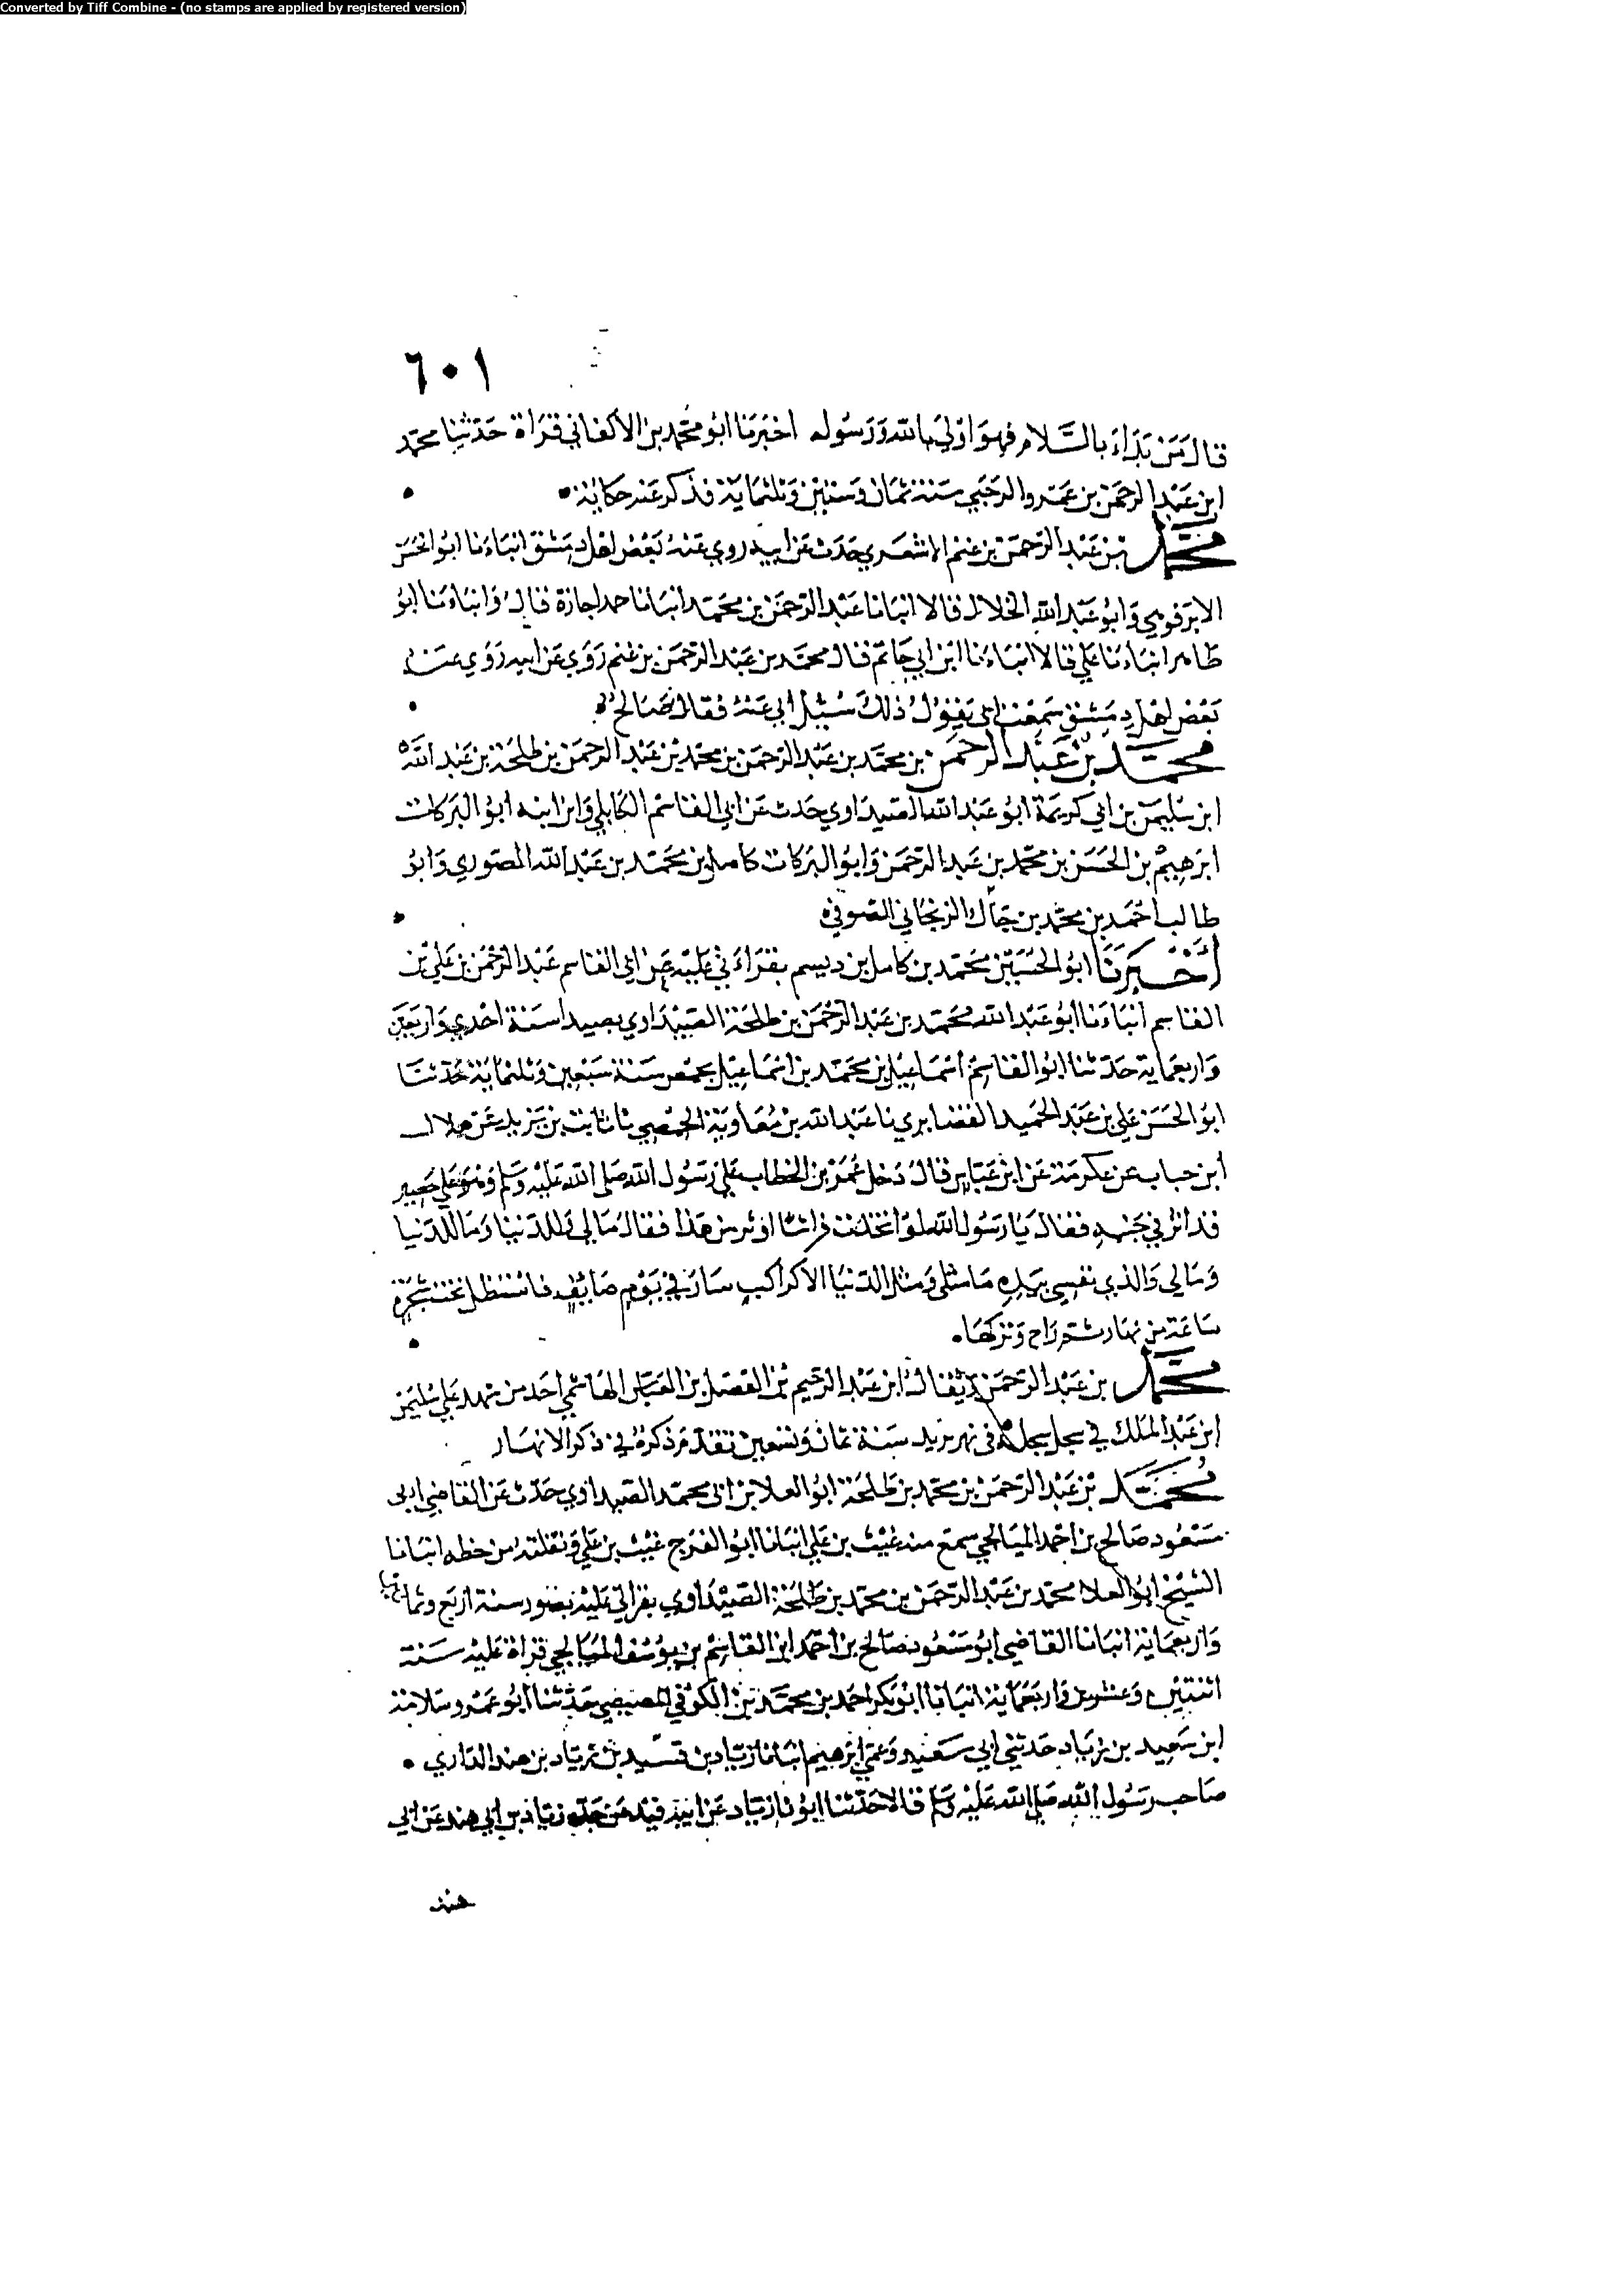 Converted by Tiff Combine - (no stamps are applied by registered version)
٦٠١
قال من بداء بالسلام فهو اولي بالله ورسوله اخبرنا ابو محمد بن الاكفاني قراة حدثنا محمد
ابن عبد الرحمن بن عمرو الرحبي سنة ثمان وستين وثلثماية فذكر عنه حكاية
محمد بن عبد الرحمن بن غنم الاشعري حدث عن ابيه روي عنه بعض اهل دمشق انباءنا ابو الحسن
الابرقوهي وابو عبد الله الخلال قالا انبانا عبد الرحمن بن محمد انبانا حمد اجازة قال وانباءنا ابو
طاهر انباءنا علي قالا انباءنا ابن ابي حاتم قال محمد بن عبد الرحمن بن غنم روي عن ابيه روي عنه
بعض اهل دمشق سمعت ابي يقول ذلك سئل ابي عنه فقال صالح
محمد بن عبد الرحمن بن محمد بن عبد الرحمن بن محمد بن عبد الرحمن بن طلحة بن عبد الله
ابن سليمن بن ابي كريمة ابو عبد الله الصيداوي حدث عن ابي القاسم الكابلي وابن ابنه ابو البركات
ابرهيم بن الحسن بن محمد بن عبد الرحمن وابو البركات كامل بن محمد بن عبد الله الصوري وابو
طالب احمد بن محمد بن الزنجاني الصوفي
اخبرنا ابو الحسين محمد بن كامل بن ديسم بقراءتي عليه عن ابي القاسم عبد الرحمن بن علي بن
القاسم انباءنا ابو عبد الله محمد بن عبد الرحمن بن طلحة الصيداوي بصيدا سنة احدي واربعين
واربعماية حدثنا ابو القاسم اسماعيل بن محمد بن اسماعيل بحمص سنة سبعين وثلثماية حدثنا
ابو الحسن علي بن عبد الحميد الغضايري نا عبد الله بن معاوية الجمحي نا ثابت بن يزيد عن هلال
ابن خباب عن عكرمة عن ابن عباس قال دخل عمر بن الخطاب علي رسول الله صلى الله عليه وسلم وهو علي حصير
قد اثر في جنبه فقال يا رسول الله لو اتخذت فراشا اوثر من هذا فقال مالي وللدنيا وما للدنيا
ومالي والذي نفسي بيده ما مثلي ومثل الدنيا الا كراكب سار في يوم صايف فاستظل تحت شجرة
ساعة من نهار ثم راح وتركها
محمد بن عبد الرحمن ويقال ابن عبد الرحيم بن الفضل بن العباس الهاشمي احد من شهد علي سليمن
ابن عبد الملك في سجل سجله في نهر يزيد سنة ثمان وتسعين تقدم ذكره في ذكر الانهار
محمد بن عبد الرحمن بن محمد بن طلحة ابو العلا بن ابي محمد الصيداوي حدث عن القاضي ابي
مسعود صالح بن احمد الميانجي سمع منه غيث بن علي انبانا ابو الفرج غيث بن علي ونقلته من خطه انبانا
الشيخ ابو العلا محمد بن عبد الرحمن بن محمد بن طلحة الصيداوي بقراتي عليه بصور سنة اربع
واربعماية انبانا القاضي ابو مسعود صالح بن احمد ابن القاسم بن يوسف الميانجي قراة عليه سنة
اثنتين وعشرين واربعماية انبانا ابو بكر احمد بن محمد بن الكوفي المصيصي حدثنا ابو عمرو سلامة
ابن سعيد بن زياد حدثني ابي سعيد وعمي ابرهيم انبانا زياد بن بن زياد بن هند الداري
صاحب رسول الله صلى الله عليه وسلم قالا حدثنا ابونا زياد عن ابيه عن جده زياد بن ابي هند عن ابي
هند